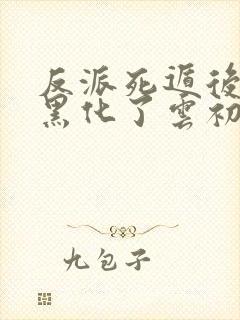 反派死遁後
黑化了雲初
九包子